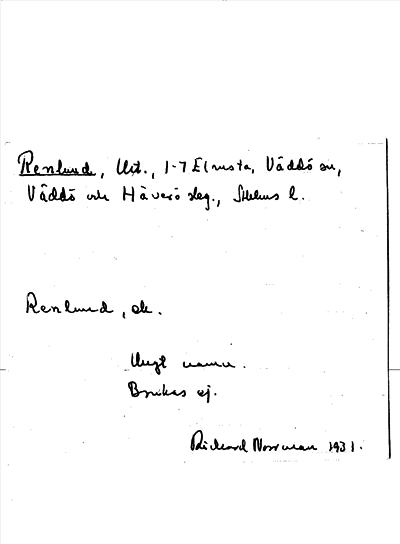 Renlund, Utj., 1-7 Elmsta, Väddö sn,
Väddö och Häverö slg., Sthlms l.
Renlund, ok.
Ungt namn.
Brukas ej.
Rickard Norrman 1931.